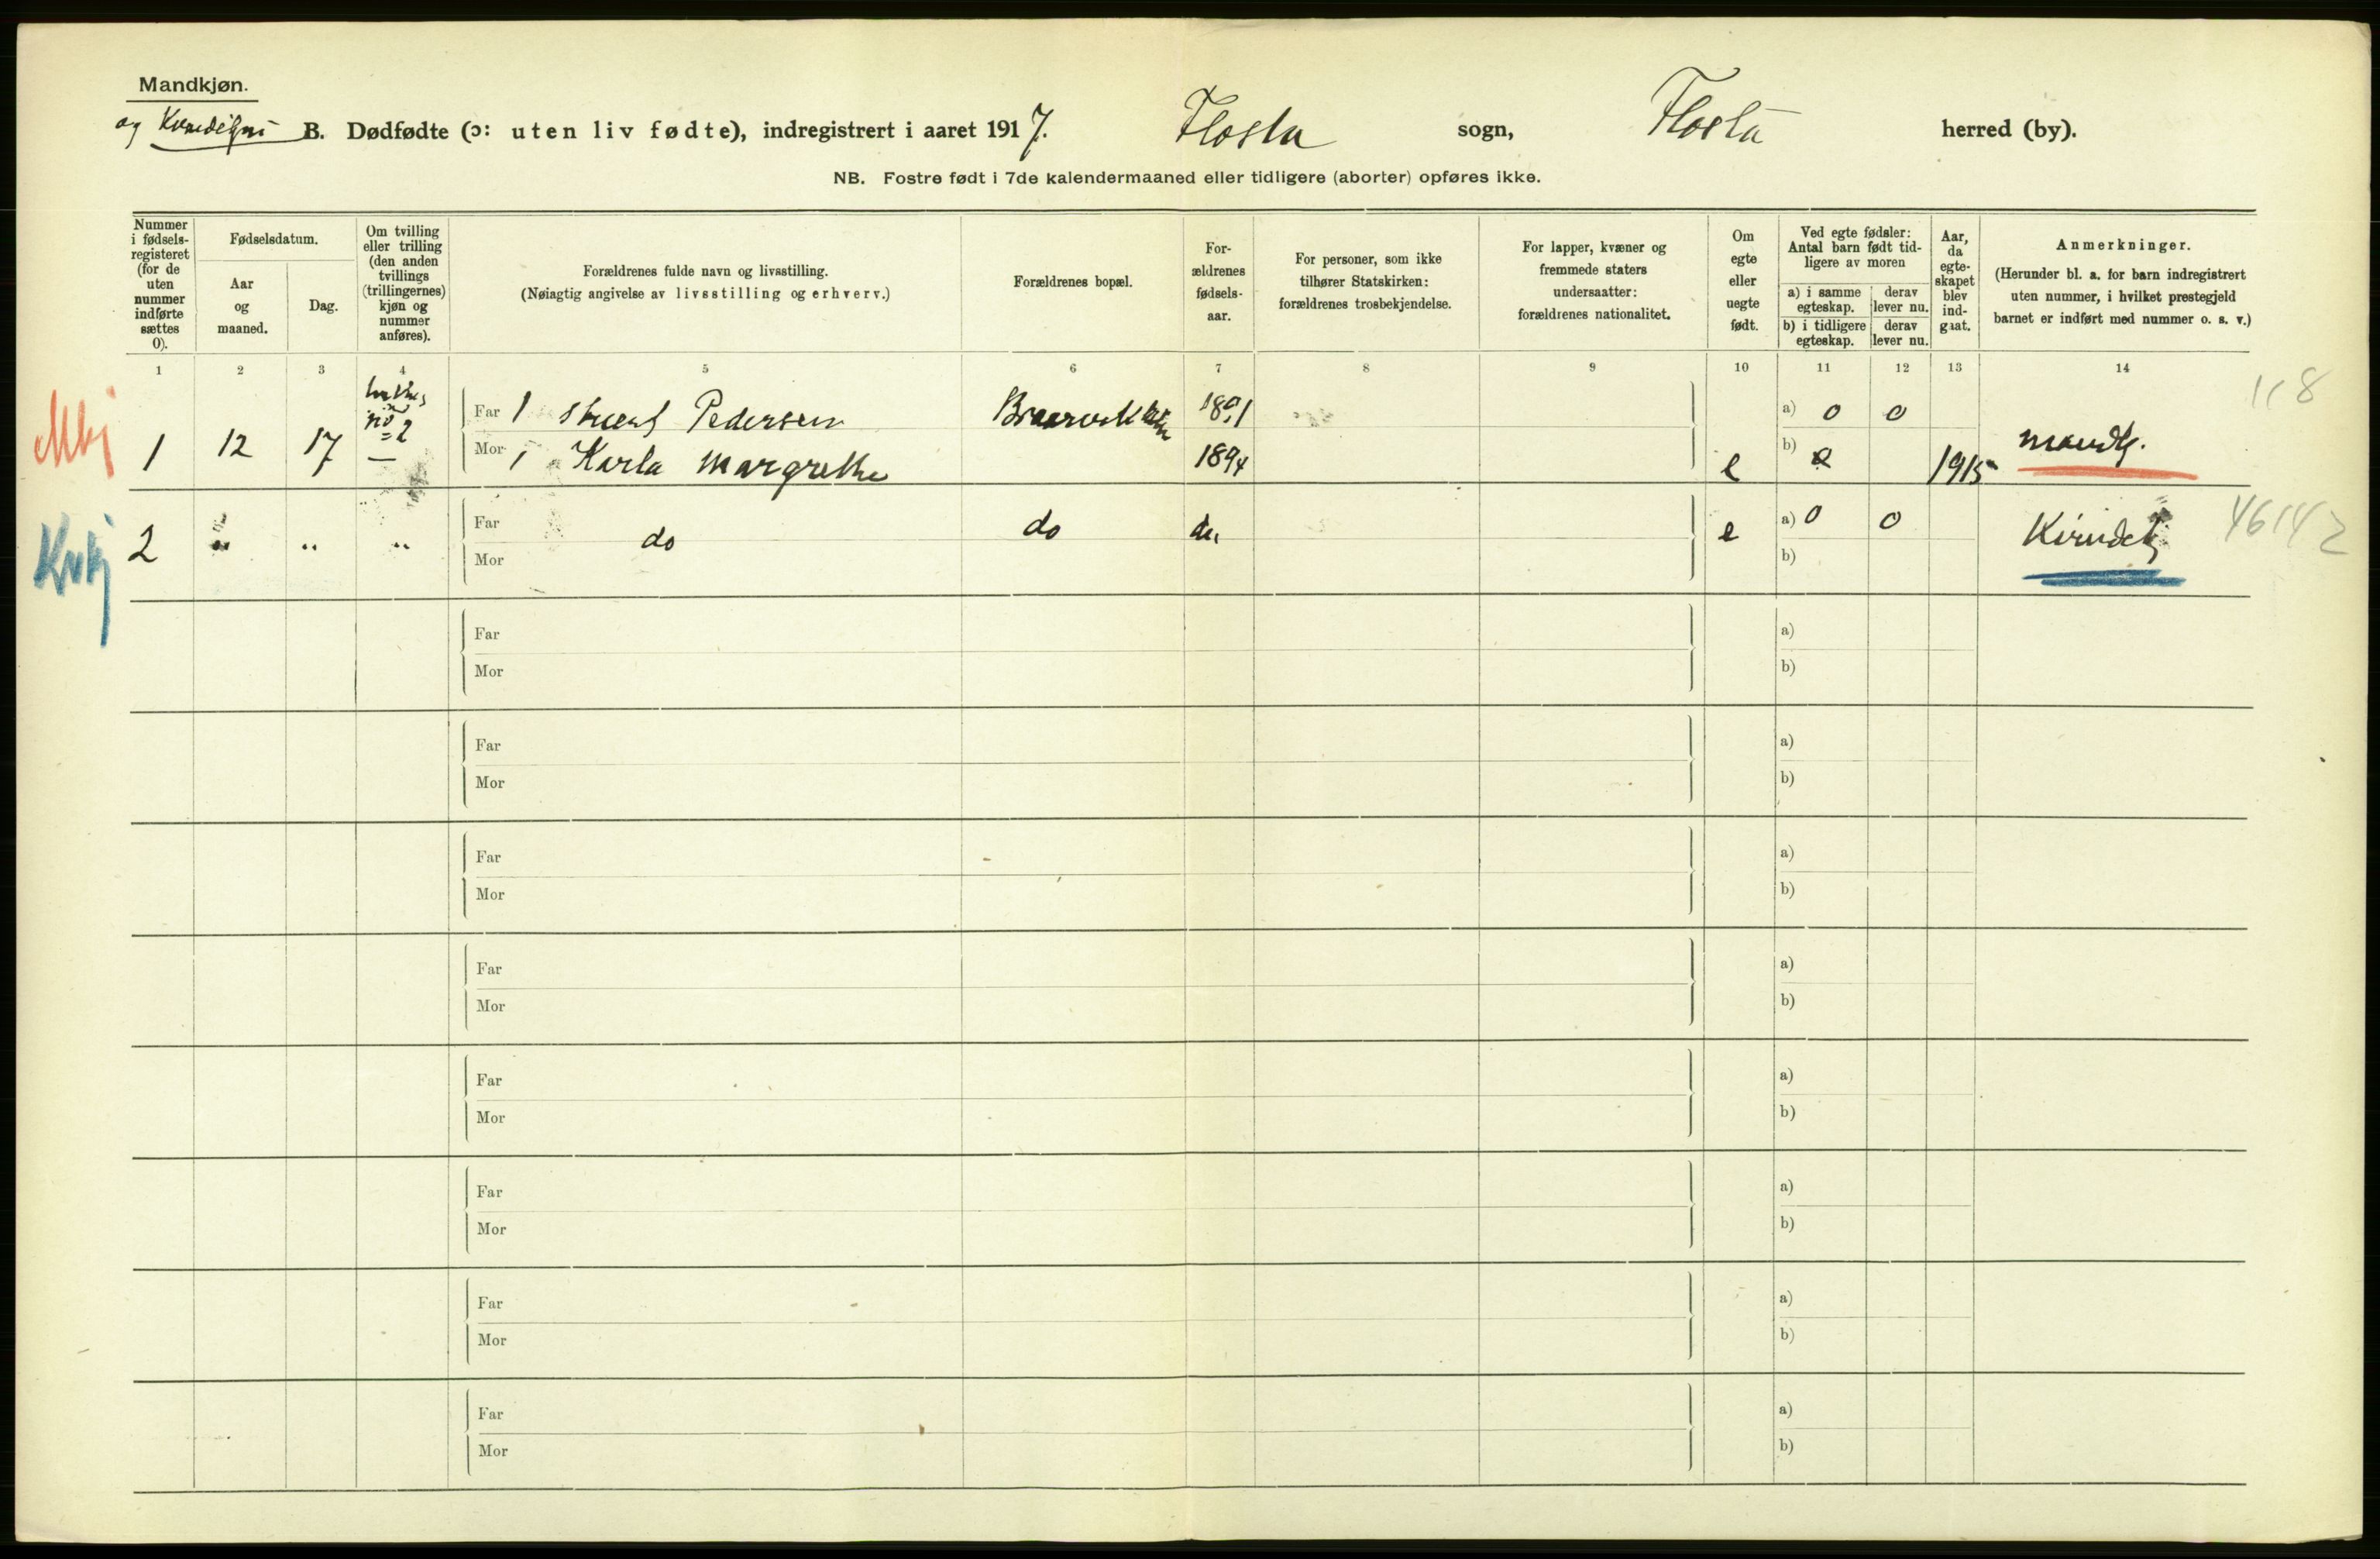 Mandkjøn.
og B. Dødfødte (ɔ: uten liv fødte), indregistrert i aaret 1917. Flosta sogn, Flosta herred (by).
NB. Fostre født i 7de kalendermaaned eller tidligere (aborter) opføres ikke.
Nummer i fødsels-registeret (for de uten nummer indførte sættes 0).
Fødselsdatum.
Aar og maaned.
Dag.
Om tvilling eller trilling (den anden tvillings (trillingernes) kjøn og nummer anføres).
Forældrenes fulde navn og livsstilling.
(Nøiagtig angivelse av livsstilling og erhverv.)
Forældrenes bopæl.
For-ældrenes fødsels-aar.
For personer, som ikke tilhører Statskirken: forældrenes trosbekjendelse.
For lapper, kvæner og fremmede staters undersaatter: forældrenes nationalitet.
Om egte eller uegte født.
Ved egte fødsler: Antal barn født tid-ligere av moren
a) i samme egteskap. derav lever nu.
b) i tidligere egteskap. derav lever nu.
Aar, da egte-skapet blev ind-gaat.
Anmerkninger.
(Herunder bl. a. for barn indregistrert uten nummer, i hvilket prestegjeld barnet er indført med nummer o. s. v.)
1 2 3 4 5 6 7 8 9 10 11 12 13 14
118
Mkj 1 12 17 no 2
Far 1 Pedersen 1891 a) 0 0
Mor 1 Karla Margrethe 1894 e b) 1915 mandk.
Kvkj 2 " " " Far do do do. e a) 0 0 46142
Mor b)
Far a)
Mor b)
Far a)
Mor b)
Far a)
Mor b)
Far a)
Mor b)
Far a)
Mor b)
Far a)
Mor b)
Far a)
Mor b)
Far a)
Mor b)